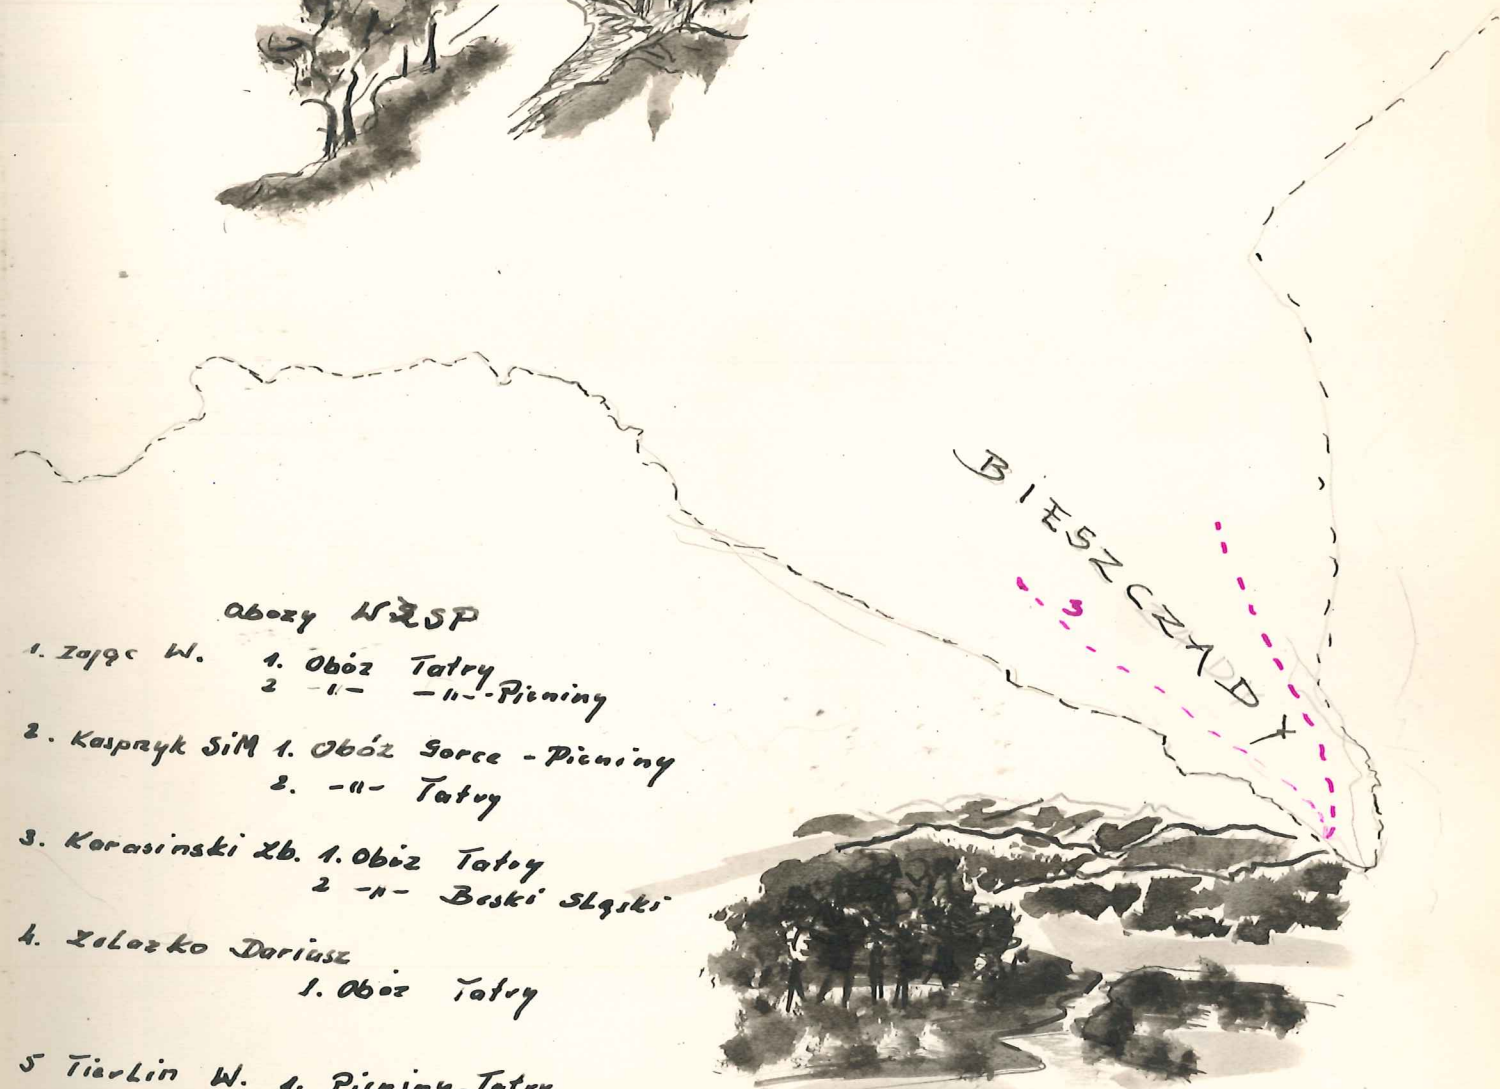 BIESZCZADY
3
Obozy WŻSP
1. Zając W. 1. Obóz Tatry
2 -"- -"- Pieniny
2. Kasprzyk SiM 1. Obóz Gorce - Pieniny
2. -"- Tatry
3. Korasinski Zb. 1. Obóz Tatry
2 -"- Beski Sląski
4. Żelazko Dariusz
1. Obóz Tatry
5 Tierlin W. 1. Pieniny Tatry